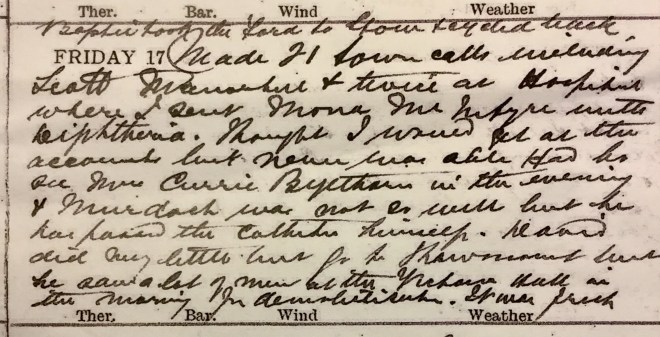 Ther. Bar. Wind Weather
took the Ford to & cycled back
FRIDAY 17 Made 21 town calls including
Scott & twice at Hospital
where I sent Mona McIntyre with
Diphtheria. Thought I would get at the
accounts but never was able Had to
see Mrs Currie Blythorn in the evening
& Murdoch was not so well but he
has passed the catheter himself. David
did very little but go to but
he saw a lot of men at the Hall in
the morning for demobilisation. It was fresh
Ther. Bar. Wind Weather